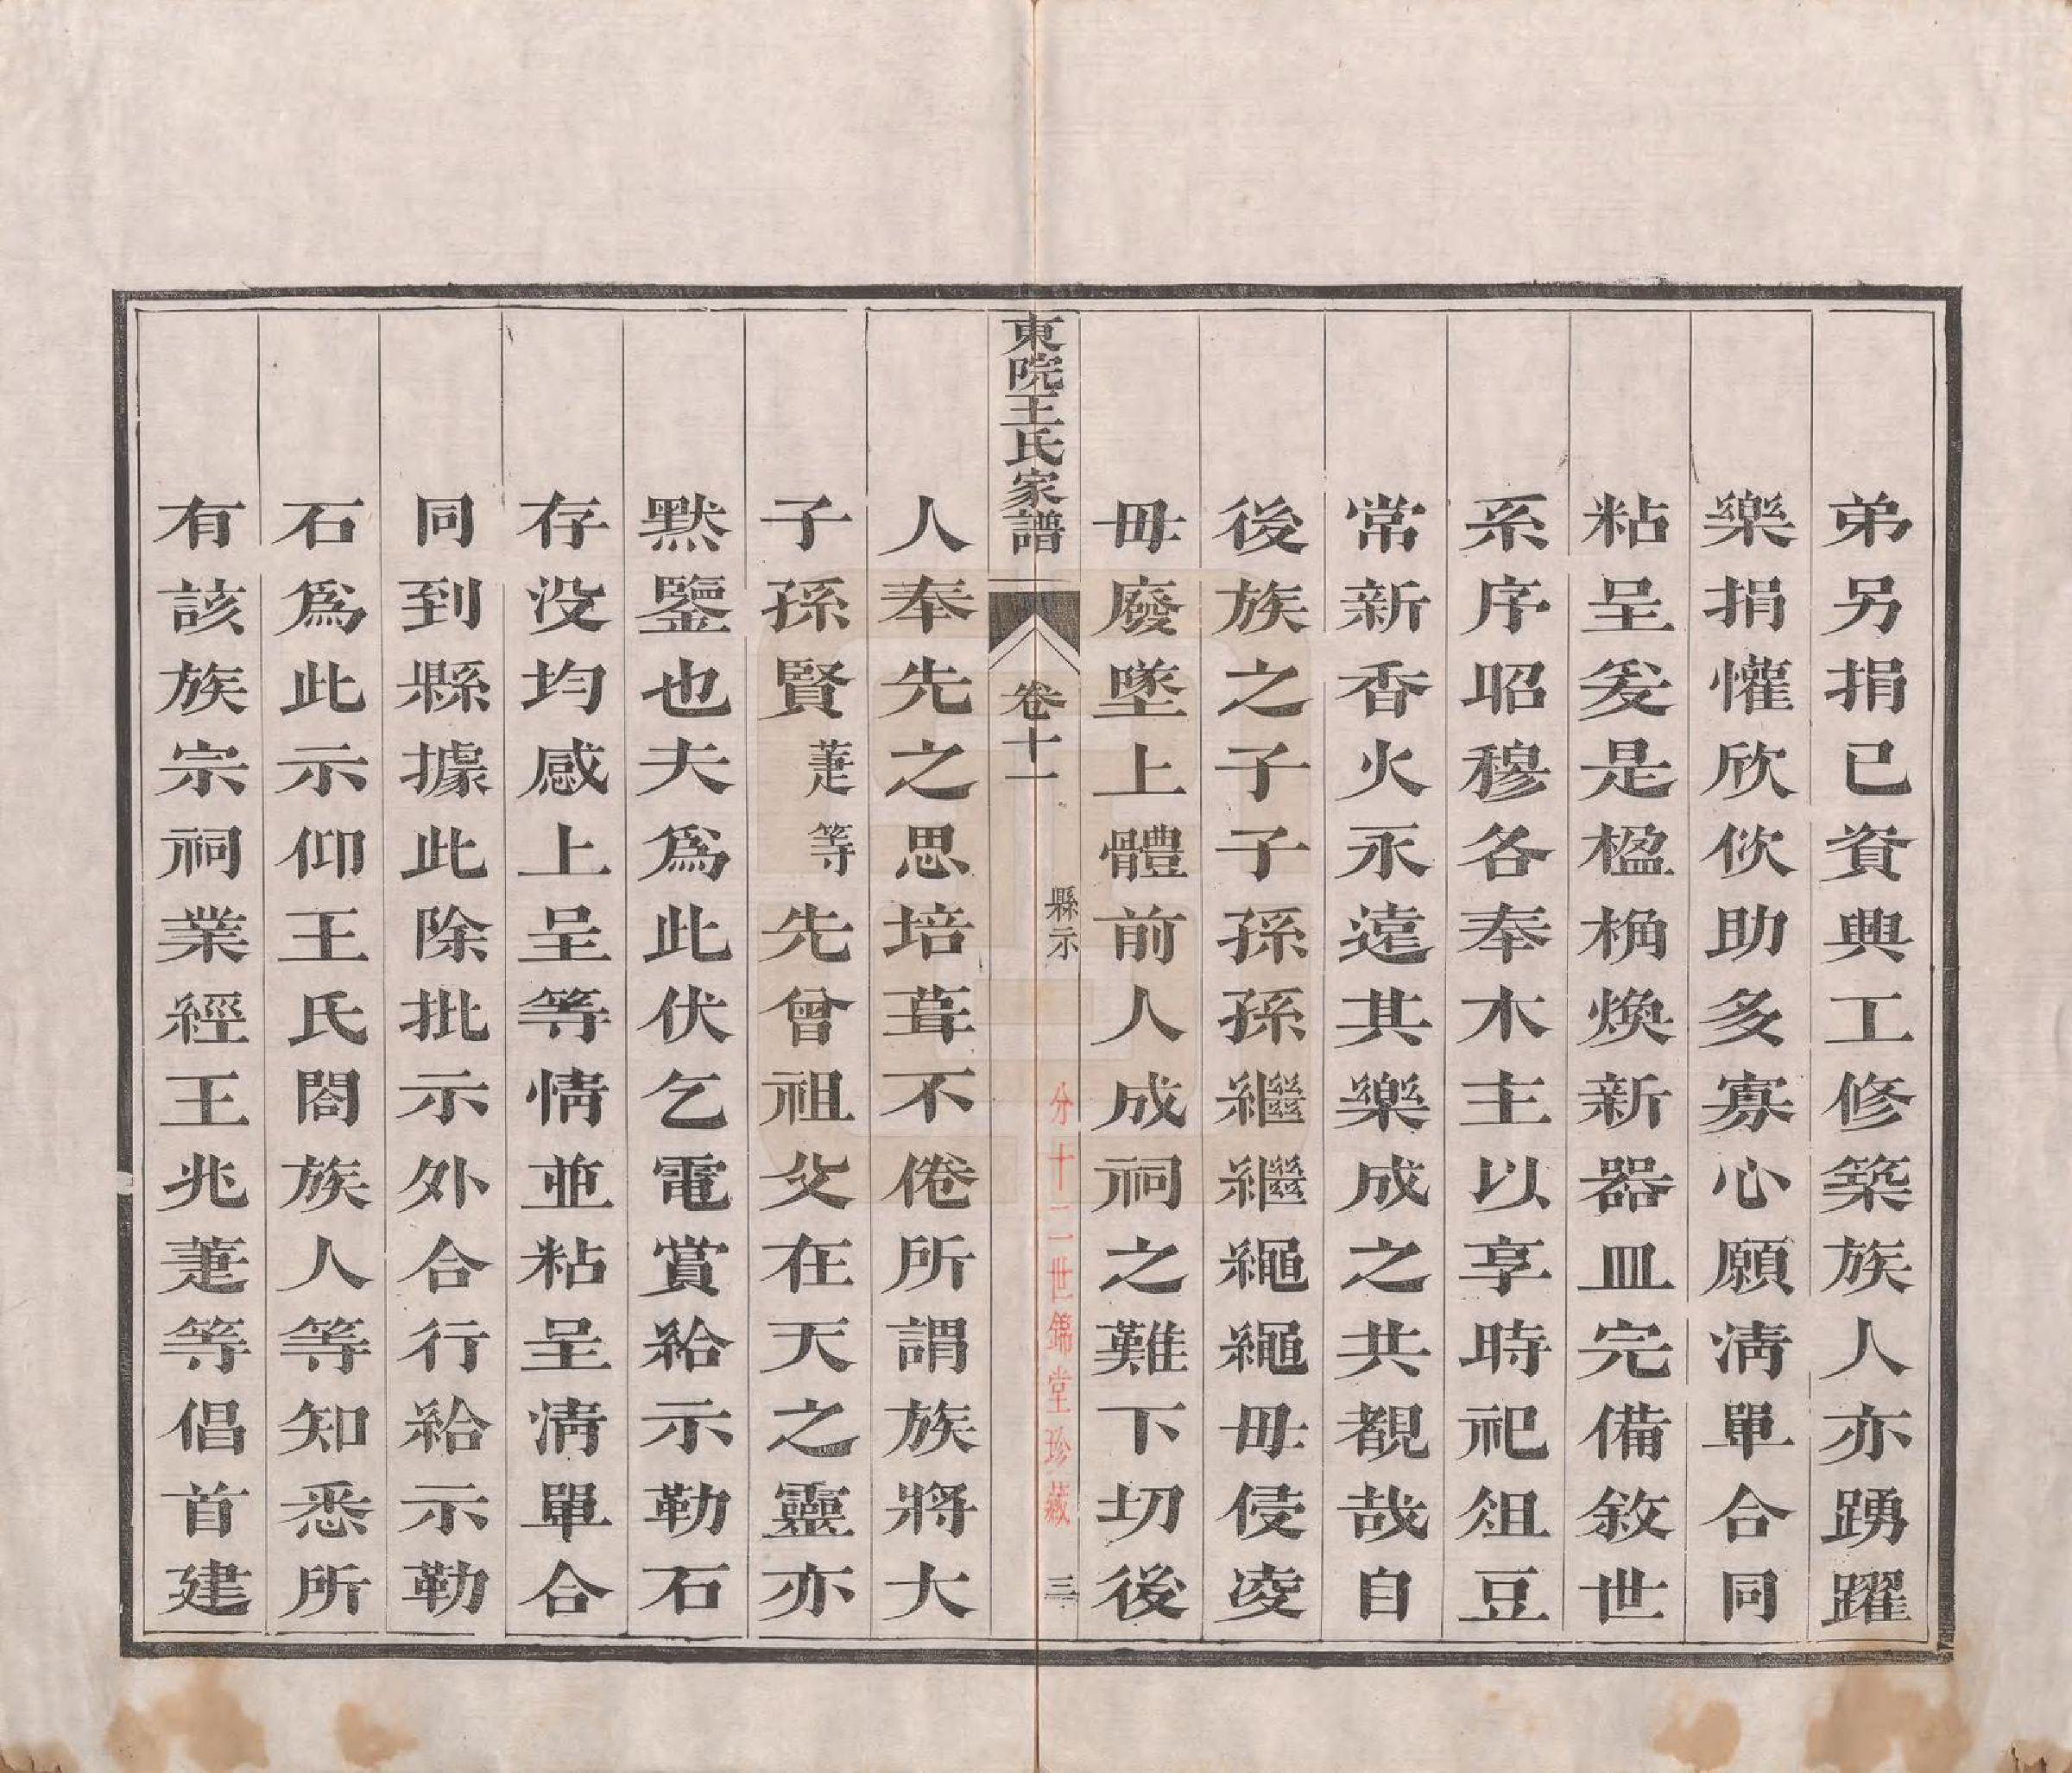 弟另捐已資典工修築族人亦踴躍
樂捐懽欣佽助多寡心願清單合同
粘呈爰是楹桷煥新器皿完備敘世
系序昭穆各奉木主以享時祀俎豆
常新香火永遠其樂成之共覩哉自
後族之子子孫孫繼繼繩繩毋侵凌
毋廢墜上體前人成祠之難下切後
東院王氏家譜 卷十一 縣示 三
分十二世錦堂珍藏
人奉先之思培葺不倦所謂族將大
子孫賢萐等先曾祖父在天之靈亦
黙鑒也夫為此伏乞電賞給示勒石
存没均感上呈等情並粘呈清單合
同到縣據此除批示外合行給示勒
石為此示仰王氏閤族人等知悉所
有該族宗祠業經王兆萐等倡首建